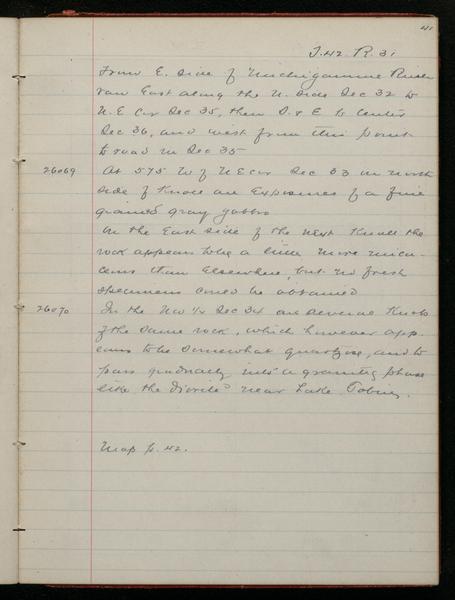 41
T.42 R.31
From E. side of Michigamme River
ran East along the N. side Sec 32 to
N.E Cor Sec 35, then S. & E to Center
Sec 36, and west from this point
to road in Sec 35
26069 At 575 W of NE cor Sec 33 on north
side of Knoll an Exposure of a fine
grained gray gabbro
On the East side of the next Knoll the
rock appears to be a little more mica-
ceous than Elsewhere, but no fresh
specimens could be obtained
26070 In the NW 1/4 Sec 34 are several Knobs
of the same rock, which however app-
ears to be somewhat quartzose, and to
pass gradually into a granitic phase
like the diorite near Lake Tobin.
Map p. 42.